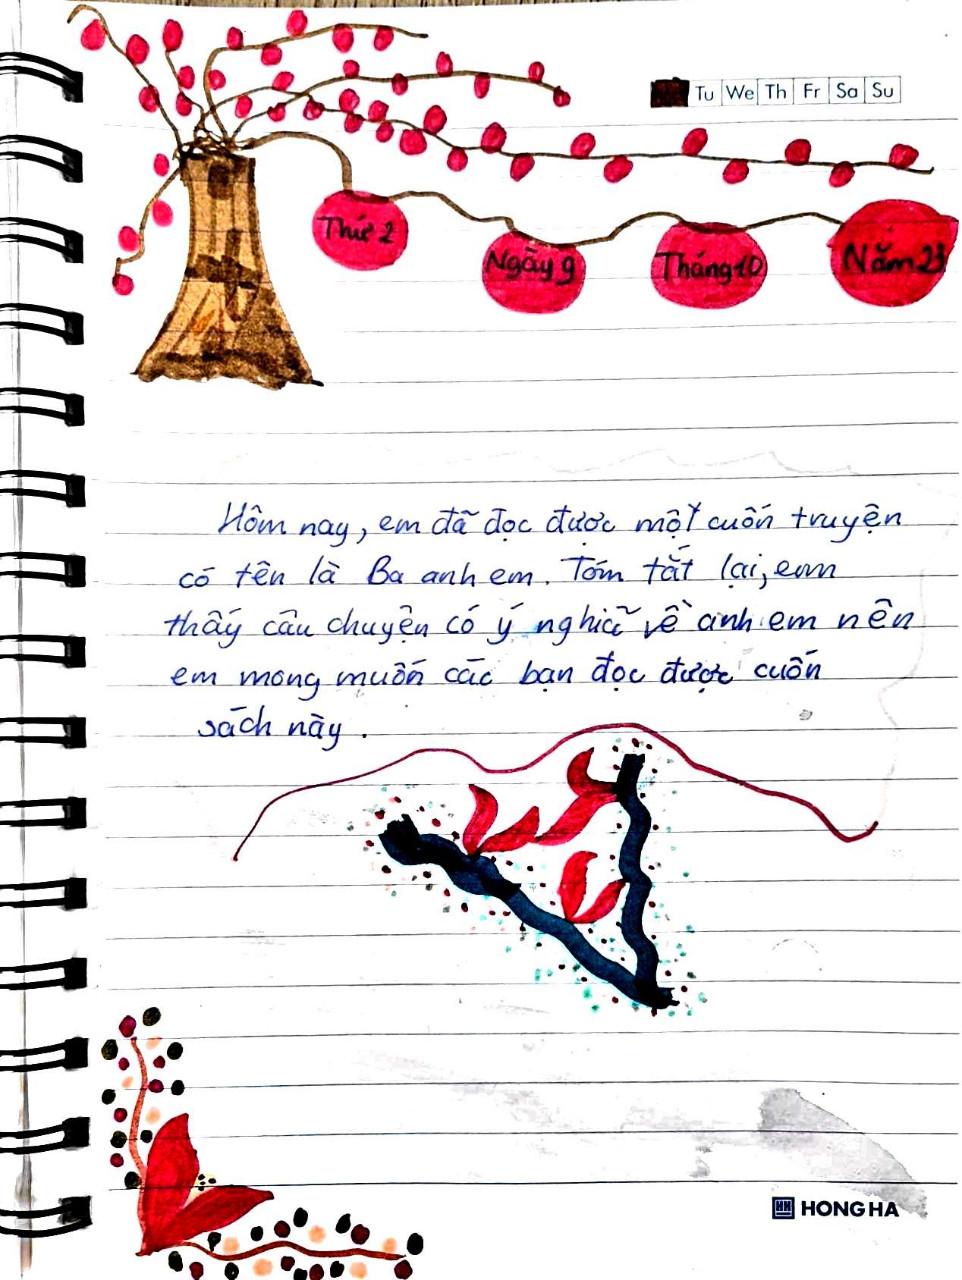 Tu We Th Fr Sa Su
Thứ 2
Ngày 9
Tháng 10
Năm 23
Hôm nay, em đã đọc được một cuốn truyện
có tên là Ba anh em. Tóm tắt lại, em
thấy câu chuyện có ý nghĩa về anh em nên
em mong muốn các bạn đọc được cuốn
sách này.
HONG HA